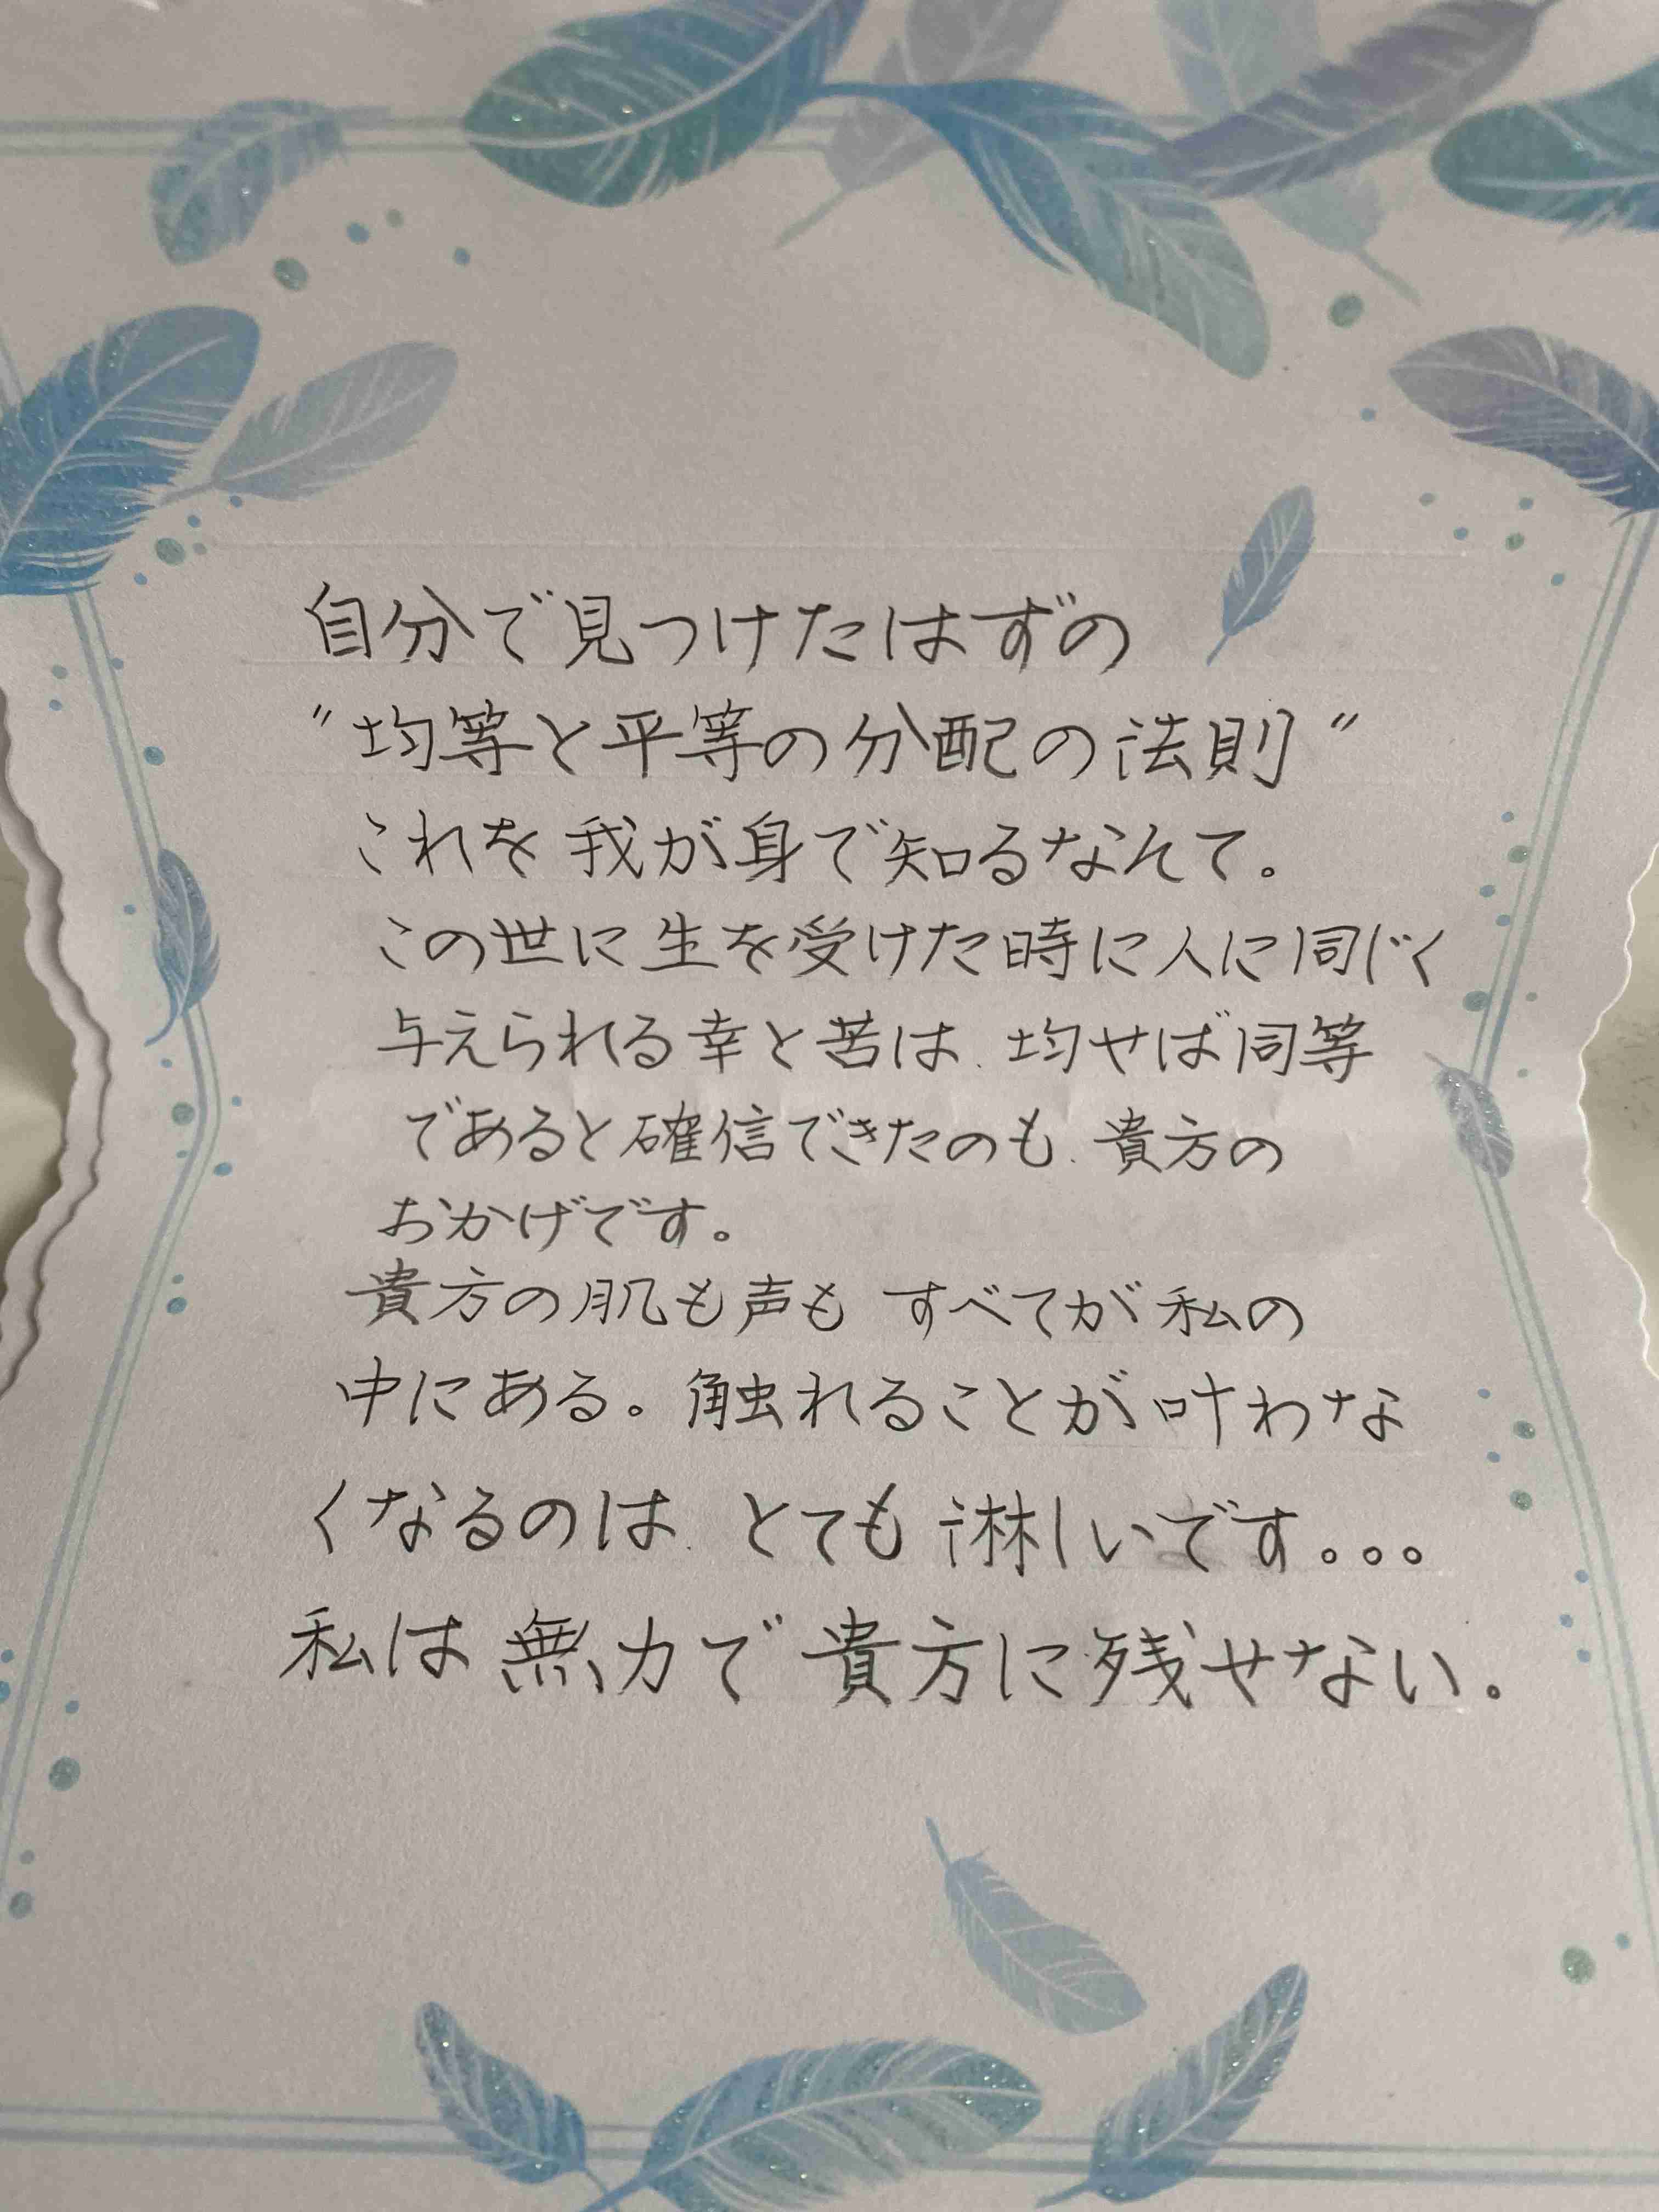 自分で見つけたはずの
"均等と平等の分配の法則"
これを我が身で知るなんて。
この世に生を受けた時に人に同じく
与えられる幸と苦は、均せば同等
であると確信できたのも、貴方の
おかげです。
貴方の肌も声も すべてが私の
中にある。触れることが叶わな
くなるのは、とても淋しいです。。。
私は無力で貴方に残せない。